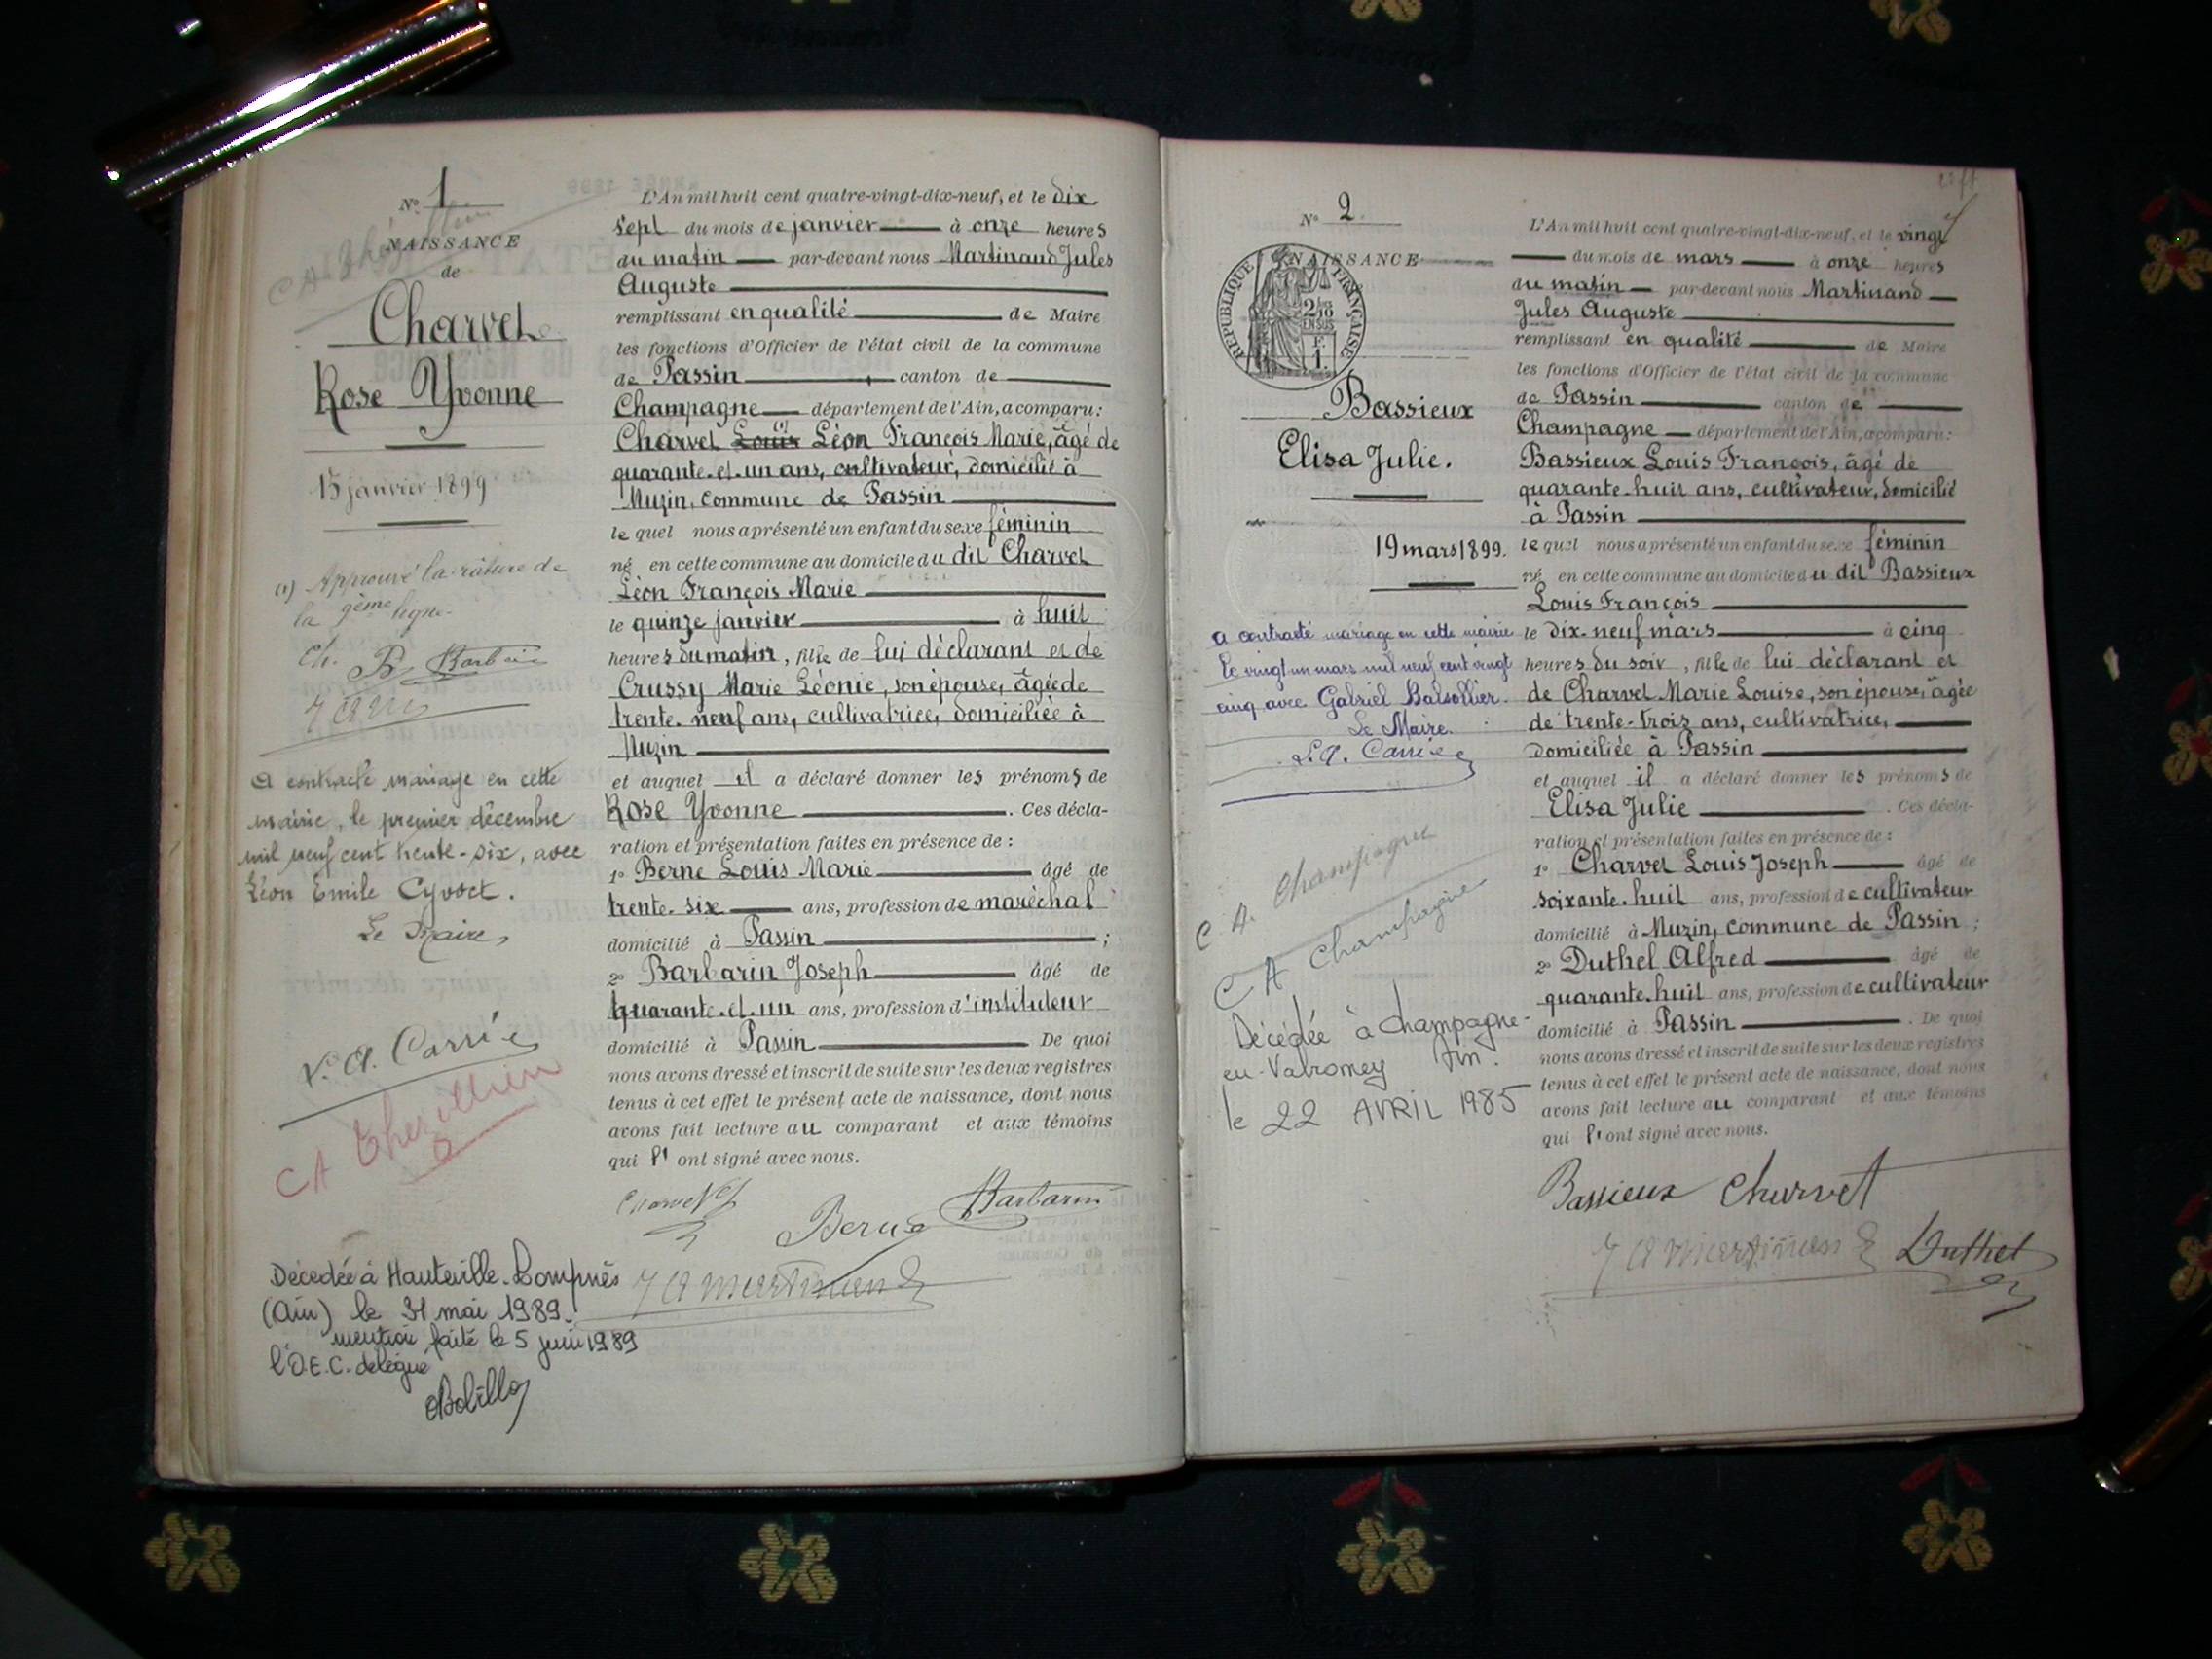 Nº 1
NAISSANCE
de
Charvet
Rose Yvonne
15 janvier 1899
(1) Approuvé la rature de
la 9ème ligne.
Ch. B. Barbarin
A contracté mariage en cette
mairie, le premier décembre
mil neuf cent trente-six, avec
Léon Emile Cyvoct.
Le Maire,
Décédée à Hauteville-Lompnès
(Ain) le 31 mai 1989.
mention faite le 5 juin 1989
l'O.E.C. délégué
L'An mil huit cent quatre-vingt-dix-neuf, et le dix
sept du mois de janvier à onze heures
du matin par-devant nous Martinand Jules
Auguste
remplissant en qualité de Maire
les fonctions d'Officier de l'état civil de la commune
de Passin canton de
Champagne département de l'Ain, a comparu:
Charvet Louis (1) Léon François Marie, âgé de
quarante-et-un ans, cultivateur, domicilié à
Muzin, commune de Passin
lequel nous a présenté un enfant du sexe féminin
né en cette commune au domicile du dit Charvet
Léon François Marie
le quinze janvier à huit
heures du matin, fille de lui déclarant et de
Crussy Marie Léonie, son épouse, âgée de
trente-neuf ans, cultivatrice, domiciliée à
Muzin
et auquel il a déclaré donner les prénoms de
Rose Yvonne. Ces décla-
ration et présentation faites en présence de :
1º Berne Louis Marie âgé de
trente-six ans, profession de maréchal
domicilié à Passin ;
2º Barbarin Joseph âgé de
quarante-et-un ans, profession d'instituteur
domicilié à Passin De quoi
nous avons dressé et inscrit de suite sur les deux registres
tenus à cet effet le présent acte de naissance, dont nous
avons fait lecture au comparant et aux témoins
qui l'ont signé avec nous.
Charvet
Berne
Barbarin
J A Martinand
Nº 2
NAISSANCE
RÉPUBLIQUE FRANÇAISE
2/10
EN SUS
F.
1.
Bassieux
Elisa Julie.
19 mars 1899.
a contracté mariage en cette mairie
le vingt un mars mil neuf cent vingt
cinq avec Gabriel Balsollier.
Le Maire.
C. A. Champagne
C A Champagne
Décédée à Champagne-
en-Valromey Ain.
le 22 AVRIL 1985
L'An mil huit cent quatre-vingt-dix-neuf, et le vingt
du mois de mars à onze heures
du matin par-devant nous Martinand
Jules Auguste
remplissant en qualité de Maire
les fonctions d'Officier de l'état civil de la commune
de Passin canton de
Champagne département de l'Ain, a comparu:
Bassieux Louis François, âgé de
quarante-huit ans, cultivateur, domicilié
à Passin
lequel nous a présenté un enfant du sexe féminin
né en cette commune au domicile du dit Bassieux
Louis François
le dix-neuf mars à cinq
heures du soir, fille de lui déclarant et
de Charvet Marie Louise, son épouse, âgée
de trente-trois ans, cultivatrice,
domiciliée à Passin
et auquel il a déclaré donner les prénoms de
Elisa Julie. Ces décla-
ration et présentation faites en présence de :
1º Charvet Louis Joseph âgé de
soixante-huit ans, profession de cultivateur
domicilié à Muzin, commune de Passin ;
2º Duthel Alfred âgé de
quarante-huit ans, profession de cultivateur
domicilié à Passin. De quoi
nous avons dressé et inscrit de suite sur les deux registres
tenus à cet effet le présent acte de naissance, dont nous
avons fait lecture au comparant et aux témoins
qui l'ont signé avec nous.
Bassieux Charvet
J A Martinand Duthel